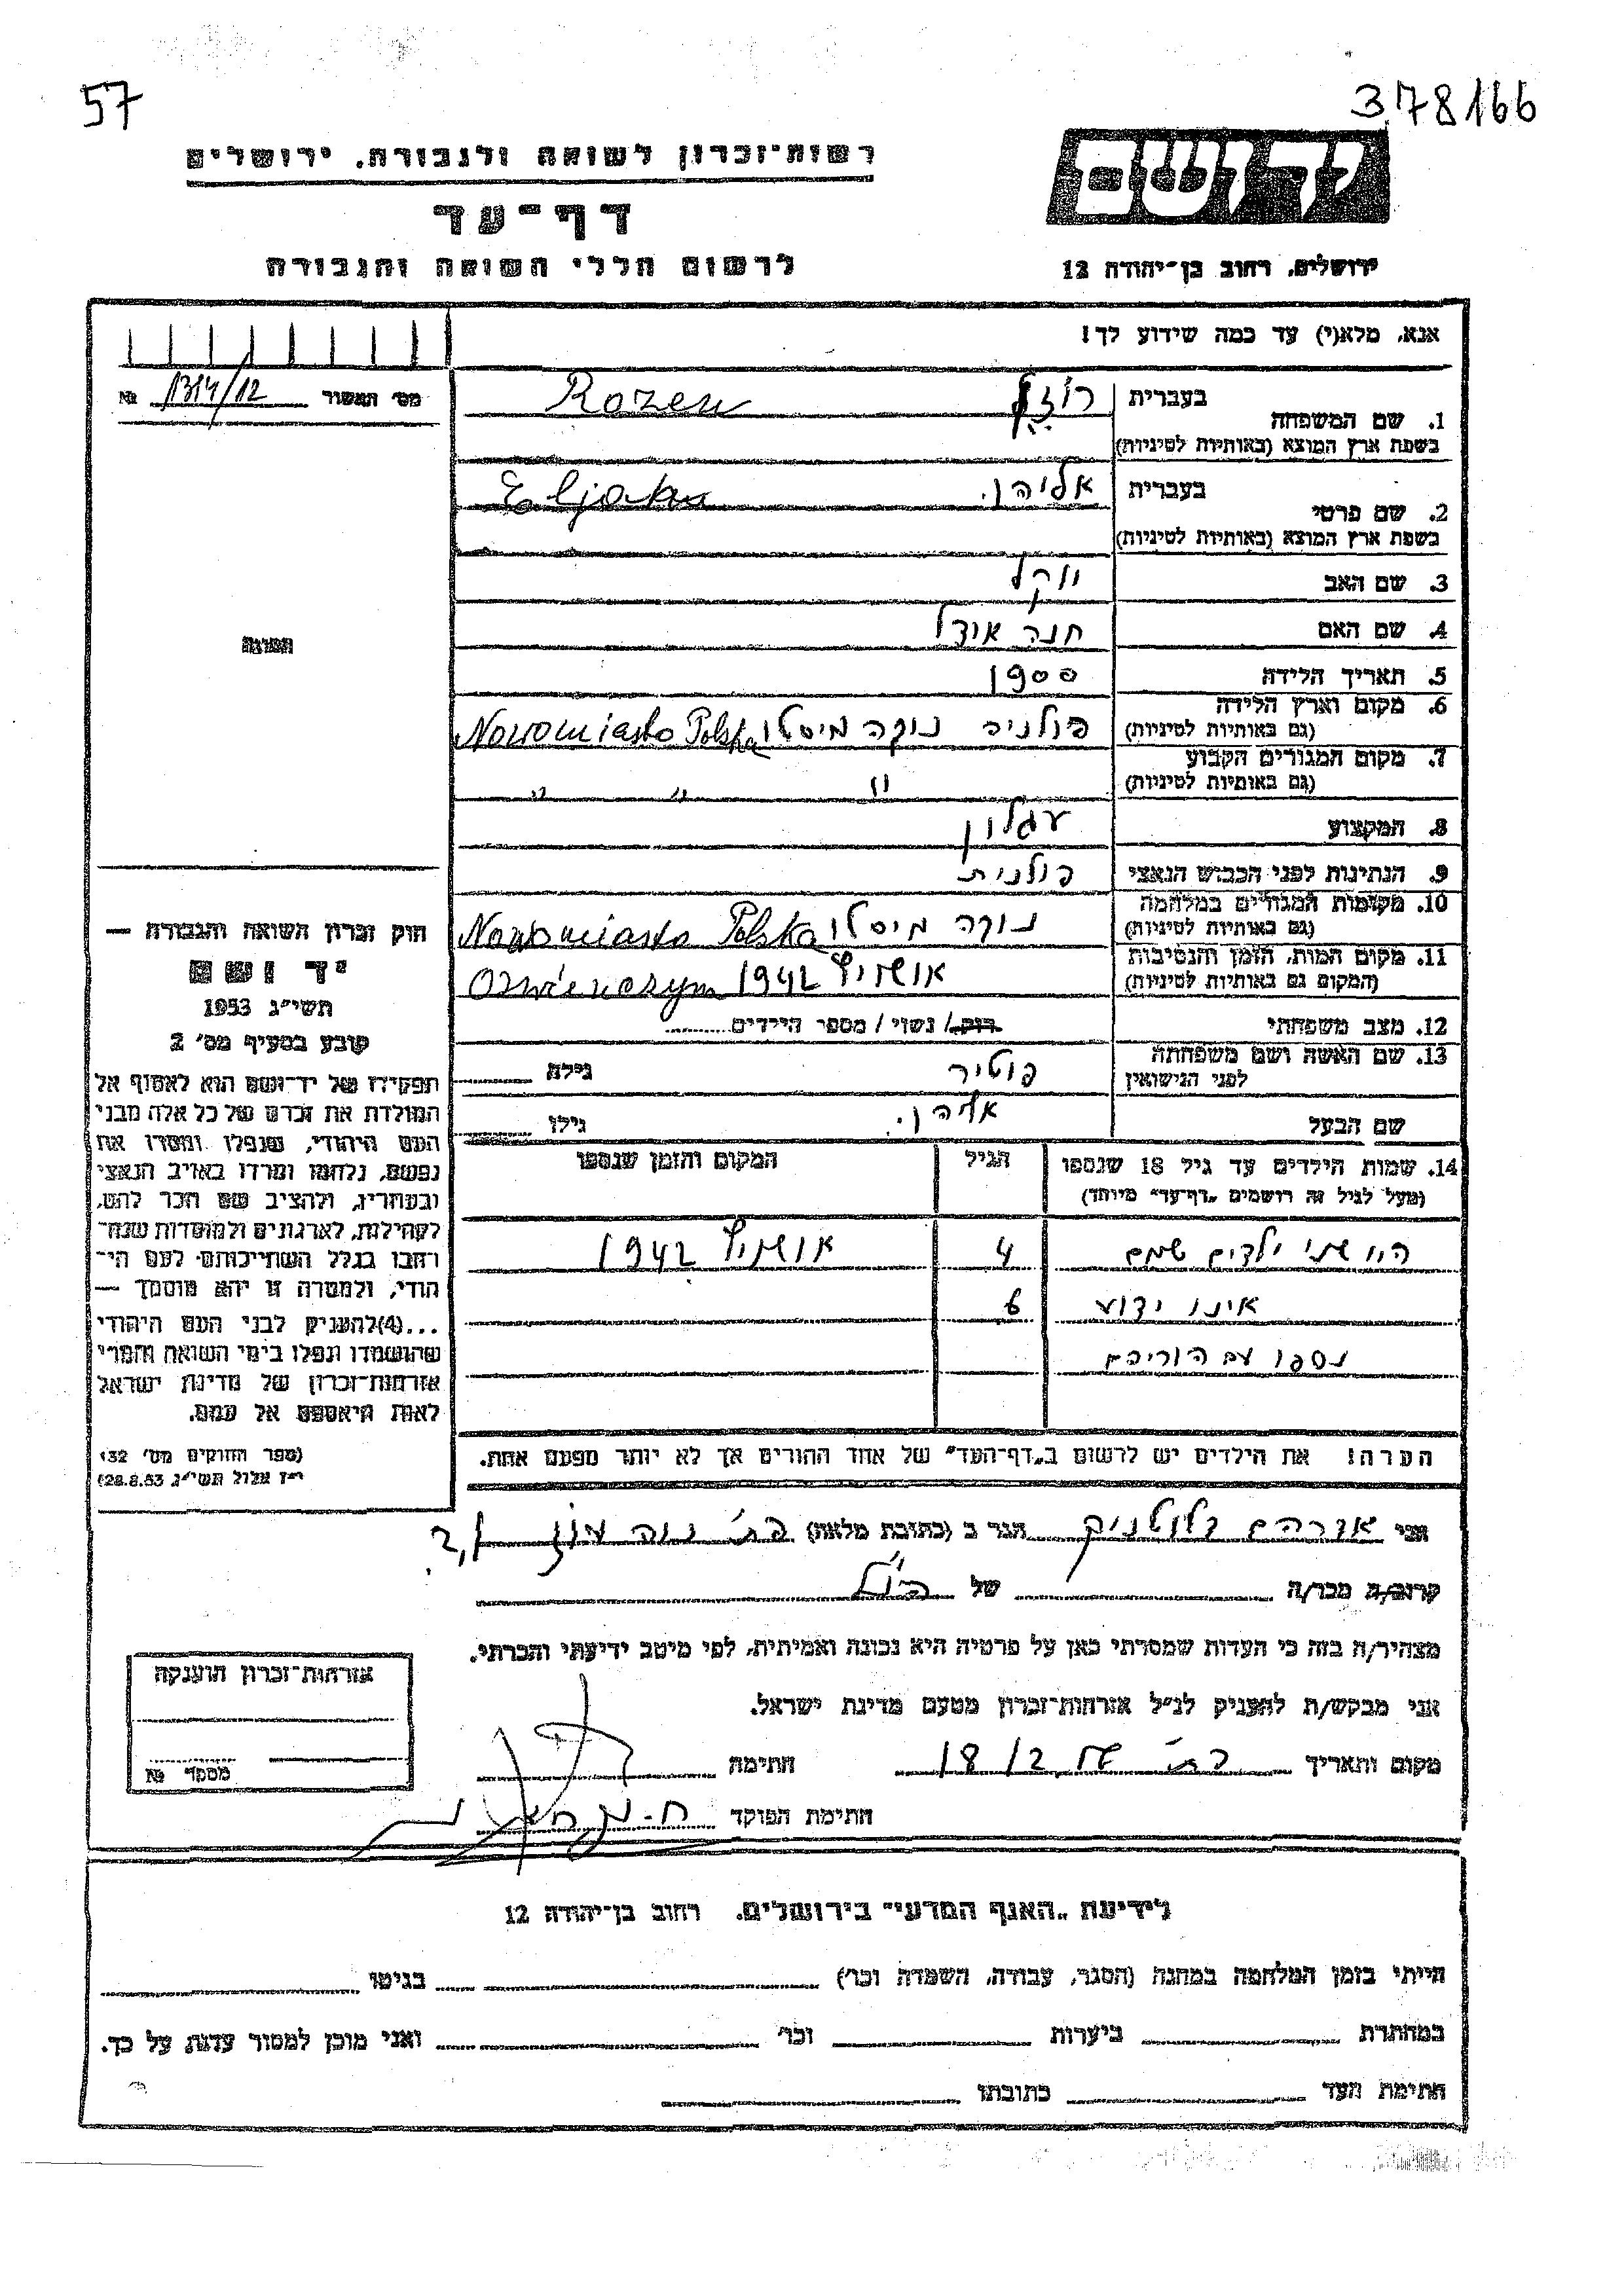 57
378166
רשות-זכרון לשואה ולגבורה. ירושלים
דף-עד
לרשום חללי השואה והגבורה
יד ושם
ירושלים, רחוב בן-יהודה 12
אנא, מלא(י) עד כמה שידוע לך!
מס' האשור 1314/12 №
1. שם המשפחה
בעברית רוזן Rozen
בשפת ארץ המוצא (באותיות לטיניות)
2. שם פרטי
בעברית אליהו. Eljahu
בשפת ארץ המוצא (באותיות לטיניות)
3. שם האב
4. שם האם חנה אודל
5. תאריך הלידה 1900
6. מקום וארץ הלידה פולניה נובה מיסטו Nowomiasto Polska
(גם באותיות לטיניות)
7. מקום המגורים הקבוע
(גם באותיות לטיניות) " " "
8. המקצוע עגלון
9. הנתינות לפני הכבוש הנאצי פולנית
10. מקומות המגורים במלחמה נובה מיסטו Nowomiasto Polska
(גם באותיות לטיניות)
11. מקום המות, הזמן והנסיבות אושויץ 1942
(המקום גם באותיות לטיניות)
12. מצב משפחתי רוק/ נשוי/ מספר הילדים
13. שם האשה ושם משפחתה
לפני הנישואין גילה
שם הבעל אליהו. גילו
14. שמות הילדים עד גיל 18 שנספו
(מעל לגיל זה רושמים "דף-עד" מיוחד)
הגיל
המקום והזמן שנספו
היו שתי ילדים שמם 4 אושויץ 1942
אינו ידוע 6
נספו עם הוריהם
הערה! את הילדים יש לרשום ב"דף-העד" של אחד ההורים אך לא יותר מפעם אחת.
התמונה
חוק זכרון השואה והגבורה —
יד ושם
תשי"ג 1953
קובע בסעיף מס' 2
תפקידו של יד-ושם הוא לאסוף אל
המולדת את זכרם של כל אלה מבני
העם היהודי, שנפלו ומסרו את
נפשם, נלחמו ומרדו באויב הנאצי
ובעוזריו, ולהציב שם וזכר להם,
לקהילות, לארגונים ולמוסדות שנח-
רבו בגלל השתייכותם לעם הי-
הודי, ולמטרה זו יהא מוסמך —
...(4)להעניק לבני העם היהודי
שהושמדו ונפלו בימי השואה והמרי
אזרחות-זכרון של מדינת ישראל
לאות היאספם אל עמם.
(ספר החוקים מס' 132
י"ז אלול תשי"ג 28.8.53)
אני אברהם הגר ב (כתובת מלאה)
קרוב/ה מכר/ה של הנ"ל
מצהיר/ה בזה כי העדות שמסרתי כאן על פרטיה היא נכונה ואמיתית, לפי מיטב ידיעתי והכרתי.
אני מבקש/ת להעניק לנ"ל אזרחות-זכרון מטעם מדינת ישראל.
מקום ותאריך חתימה
חתימת הפוקד
אזרחות-זכרון הוענקה
מספר №
לידיעת "האגף המדעי" בירושלים. רחוב בן-יהודה 12
הייתי בזמן המלחמה במחנה (הסגר, עבודה, השמדה וכו') בגיטו
במחתרת ביערות וכו' ואני מוכן למסור עדות על כך.
חתימת העד כתובתו